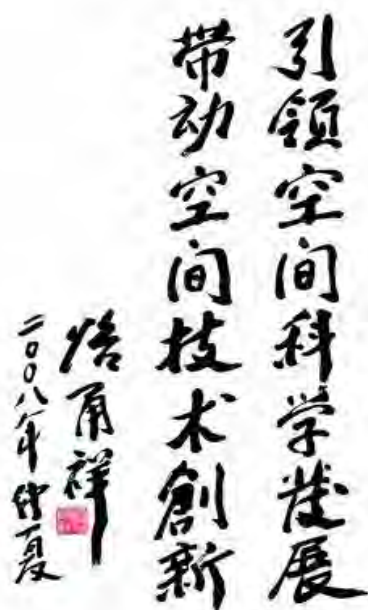 引領空间科学發展
帶动空间技术創新
路甬祥
二〇〇八年仲夏